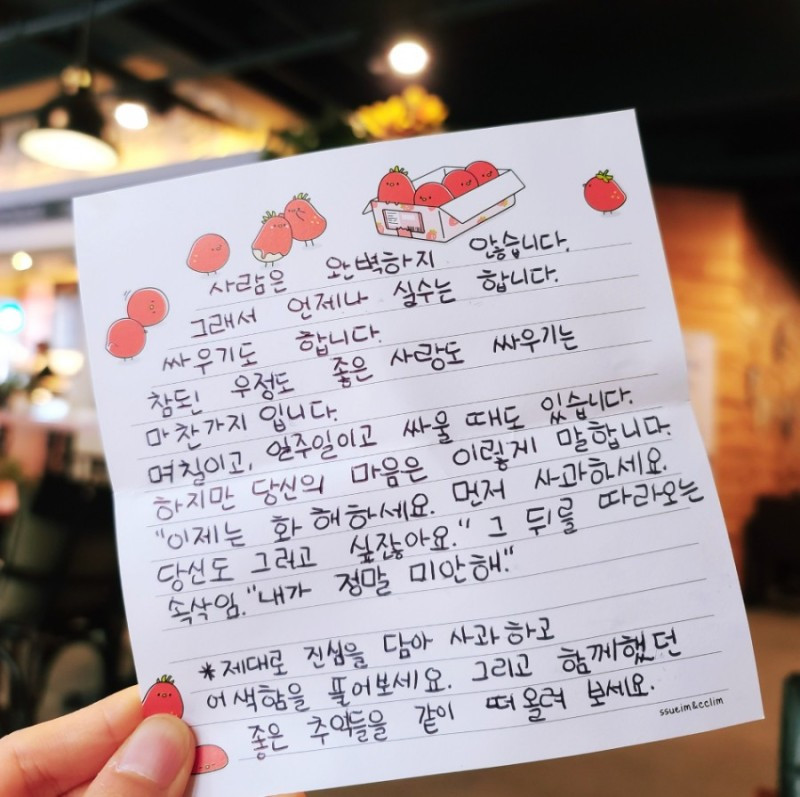 사람은 완벽하지 않습니다.
그래서 언제나 실수는 합니다.
싸우기도 합니다.
참된 우정도 좋은 사랑도 싸우기는
마찬가지 입니다.
며칠이고, 일주일이고 싸울 때도 있습니다.
하지만 당신의 마음은 이렇게 말합니다.
"이제는 화해하세요. 먼저 사과하세요.
당신도 그러고 싶잖아요." 그 뒤를 따라오는
속삭임. "내가 정말 미안해."
*제대로 진심을 담아 사과하고
어색함을 풀어보세요. 그리고 함께했던
좋은 추억들을 같이 떠올려 보세요.
ssueim&cclim